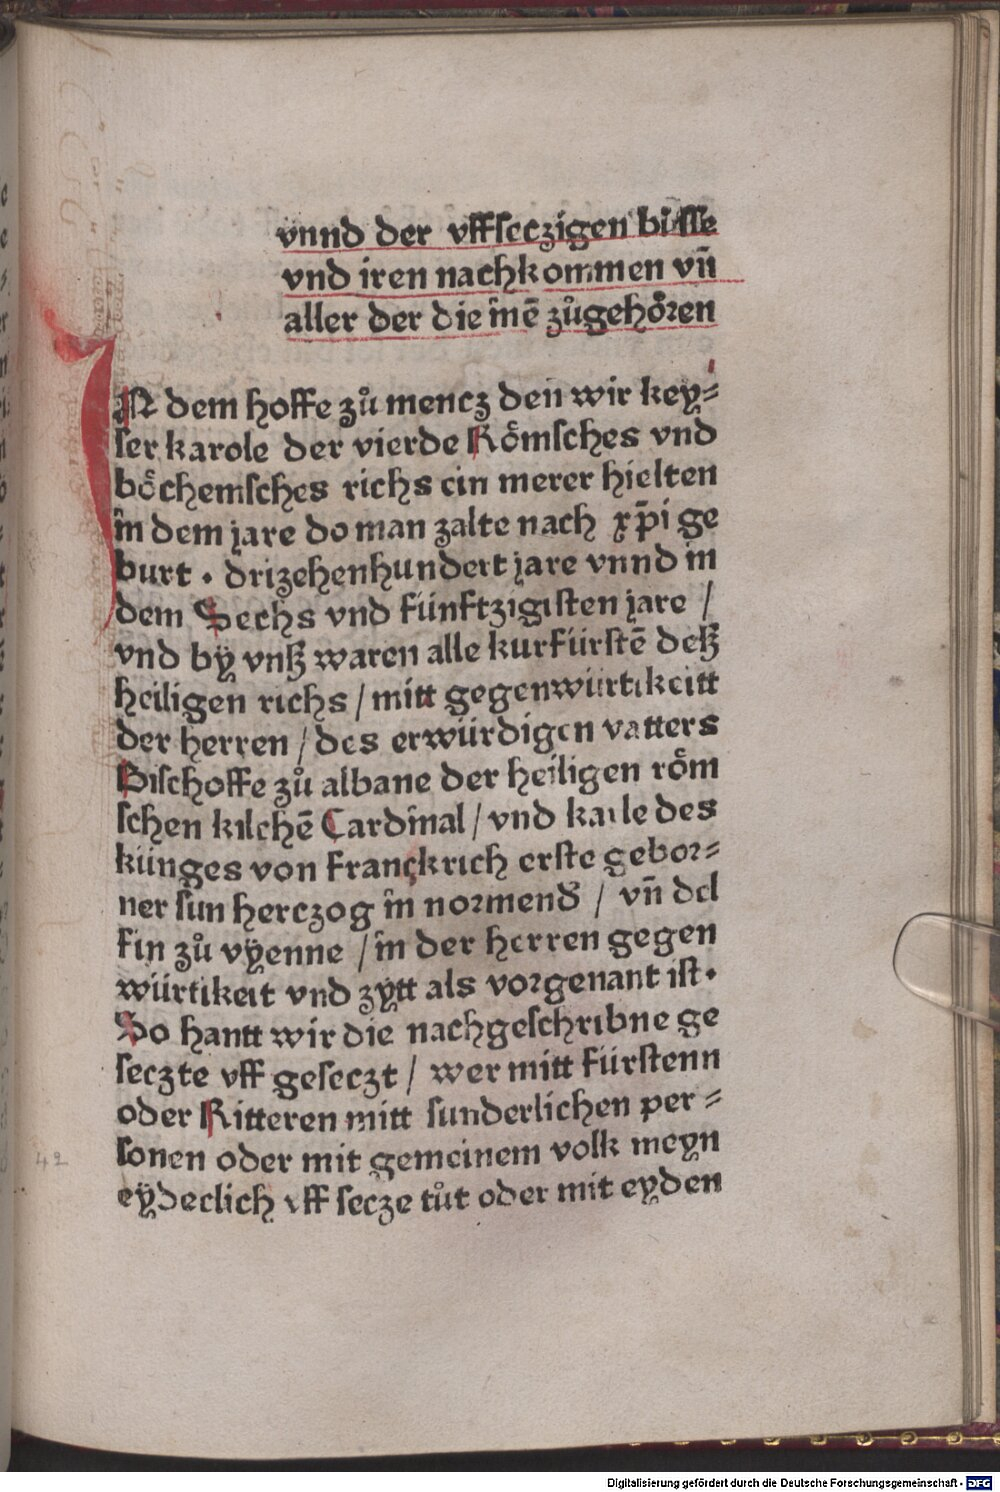 vnnd der vffseczigen buͤsse
vnd iren nachkommen vn̄
aller der die inē zůgehoͤren
IN dem hoffe zů mencz den wir key⸗
ser karole der vierde Roͤmsches vnd
boͤchemsches richs ein merer hielten
in dem jare do man zalte nach xp̄i ge
burt . drizehenhundert jare vnnd in
dem Sechs vnd fünftzigisten jare /
vnd bÿ vnß waren alle kurfürstē deß
heiligen richs / mitt gegenwürtikeitt
der herren / des erwürdigen vatters
Bischoffe zů albane der heiligen roͤm
schen kilchē Cardinal / vnd karle des
künges von franckrich erste gebor⸗
ner sun herczog in normend / vn̄ del
fin zů vÿenne / in der herren gegen
würtikeit vnd zytt als vorgenant ist.
So hantt wir die nachgeschribne ge
seczte vff geseczt / wer mitt fürstenn
oder Ritteren mitt sunderlichen per⸗
sonen oder mit gemeinem volk meyn
eÿdeclich vff secze tůt oder mit eyden
42
Digitalisierung gefördert durch die Deutsche Forschungsgemeinschaft - DFG